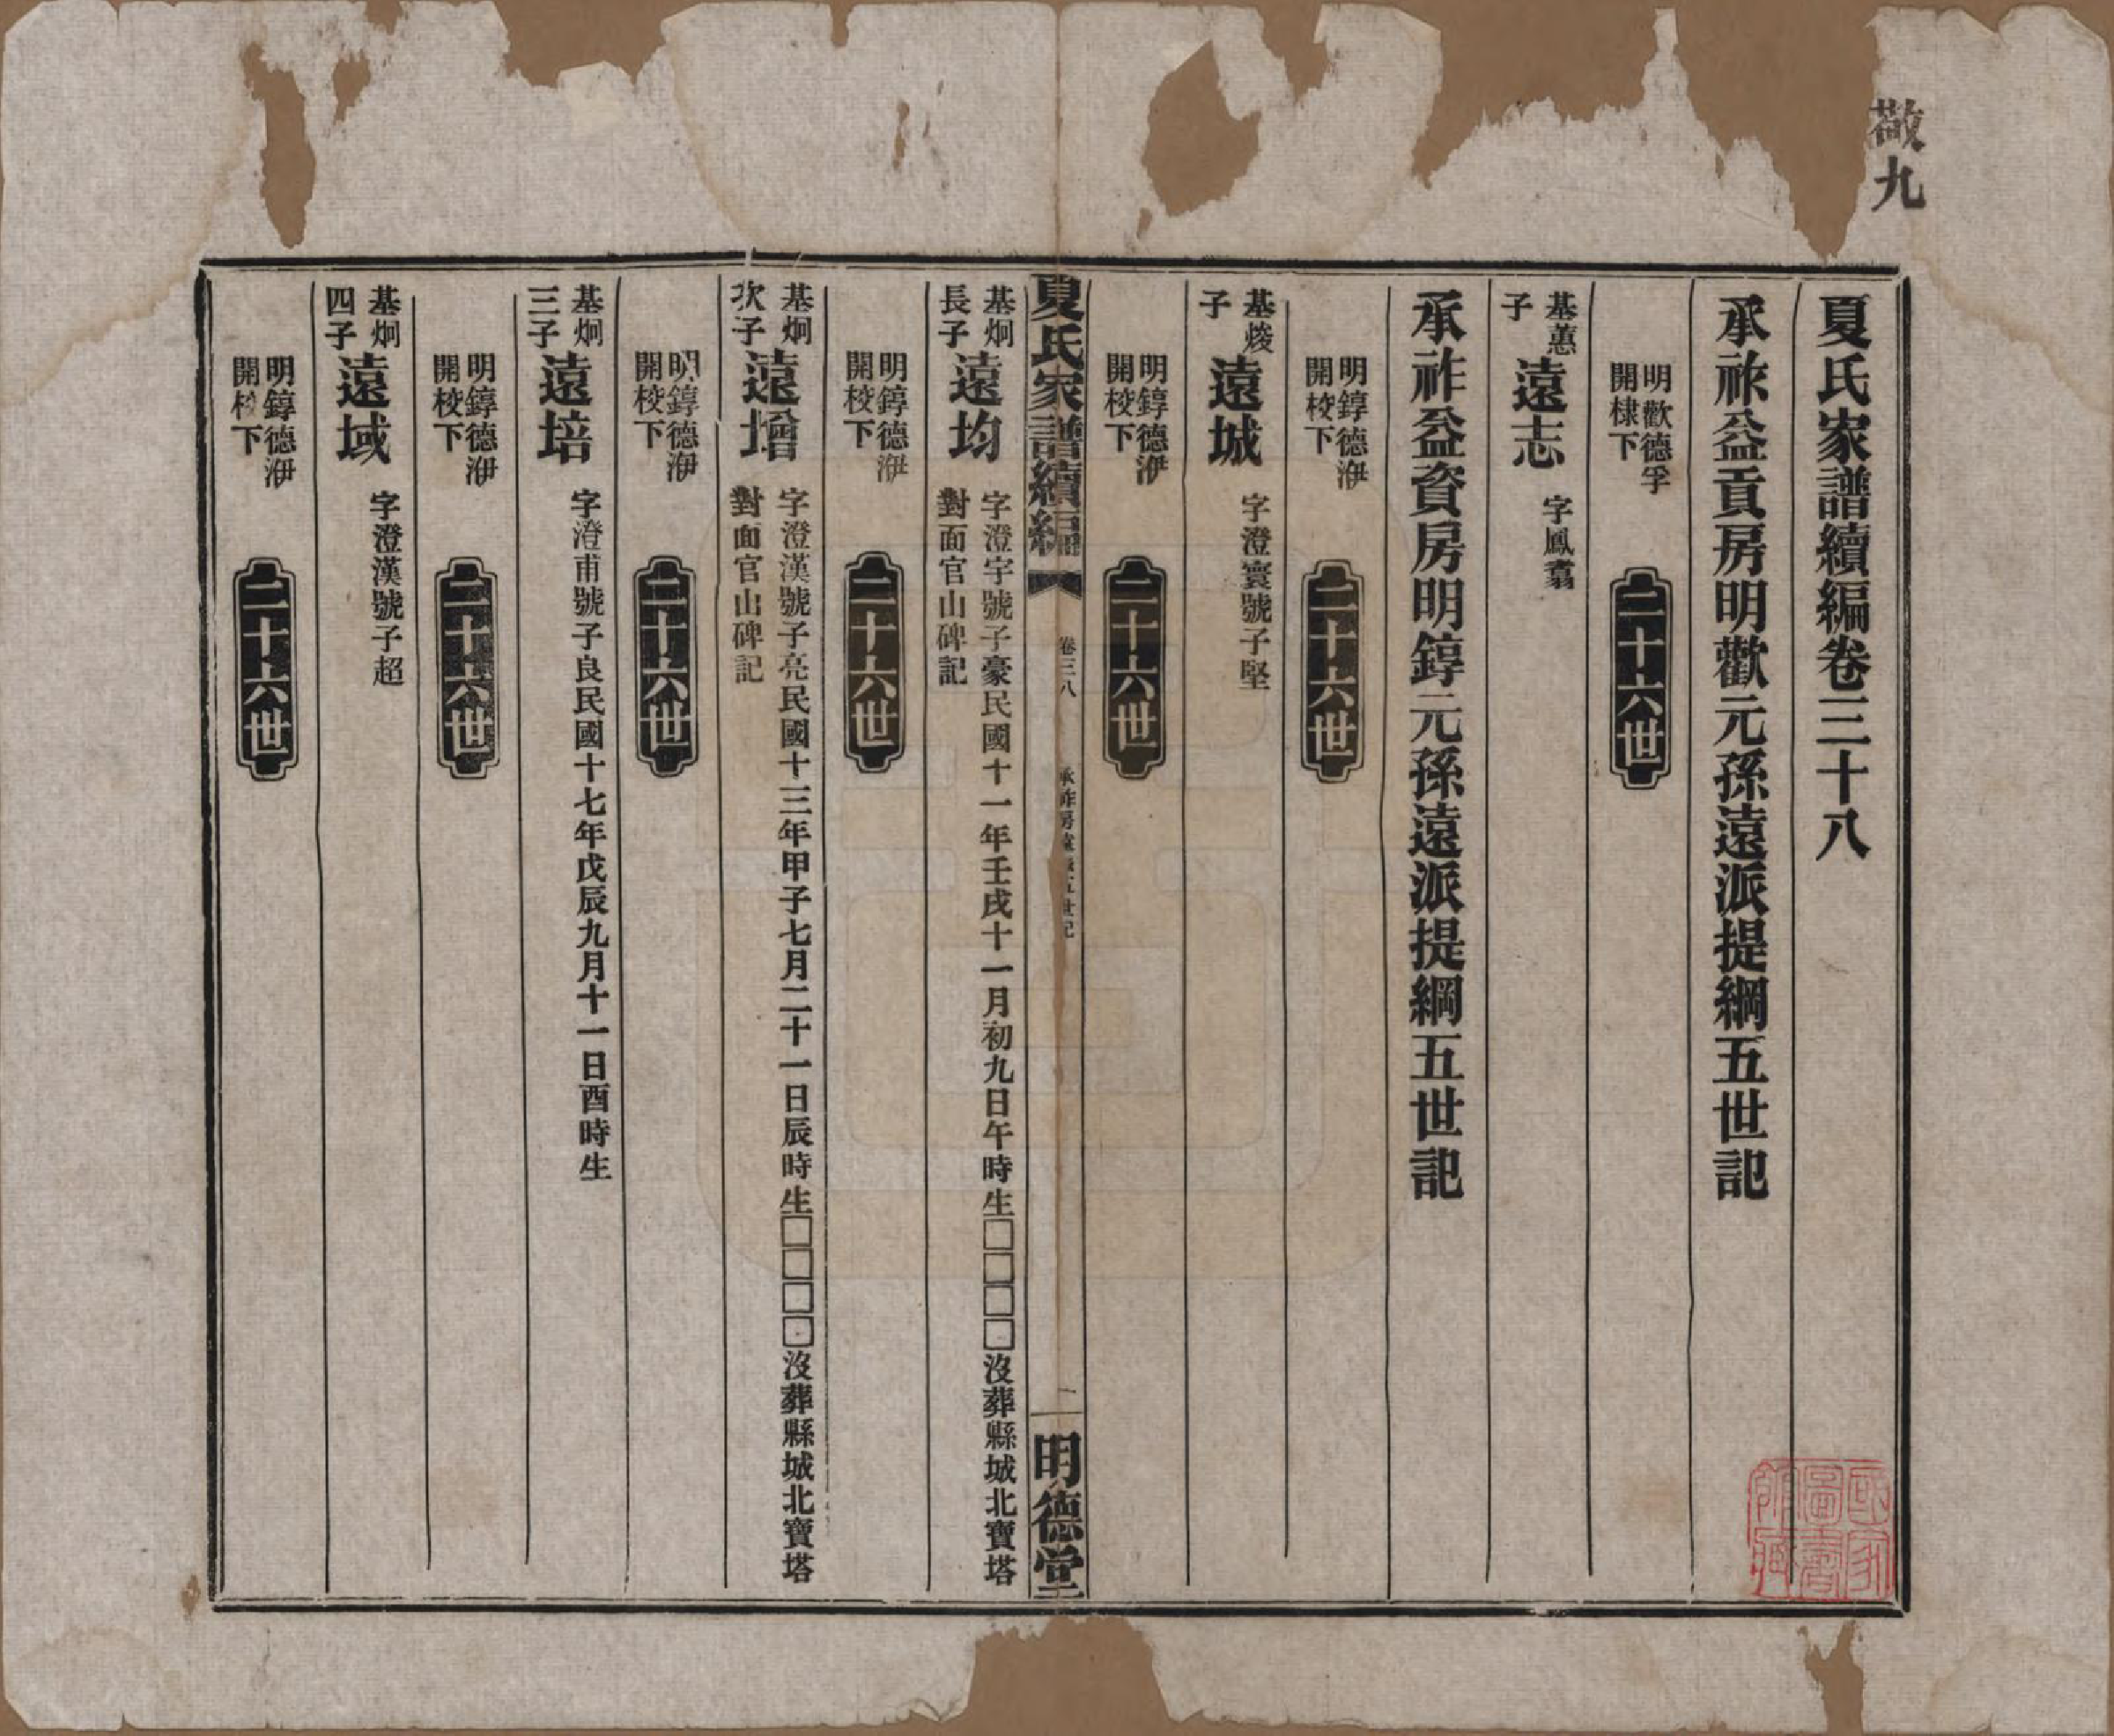 敬九
夏氏家譜續編卷三十八
承祚益貢房明歡元孫遠派提綱五世記
明歡德孚
開棣下
二十六世
基蕙
子
遠志
字鳳翥
承祚益資房明錞元孫遠派提綱五世記
明錞德洢
開校下
二十六世
基焌
子
遠城
字澄寰號子堅
明錞德洢
開校下
二十六世
夏氏家譜續編
卷三八
一
明德堂
基炯
長子
遠均
字澄宇號子豪民國十一年壬戌十一月初九日午時生□□□□沒葬縣城北寶塔
對面官山碑記
明錞德洢
開校下
二十六世
基炯
次子
遠增
字澄漢號子亮民國十三年甲子七月二十一日辰時生□□□□沒葬縣城北寶塔
對面官山碑記
明錞德洢
開校下
二十六世
基炯
三子
遠培
字澄甫號子良民國十七年戊辰九月十一日酉時生
明錞德洢
開校下
二十六世
基炯
四子
遠域
字澄漢號子超
明錞德洢
開校下
二十六世